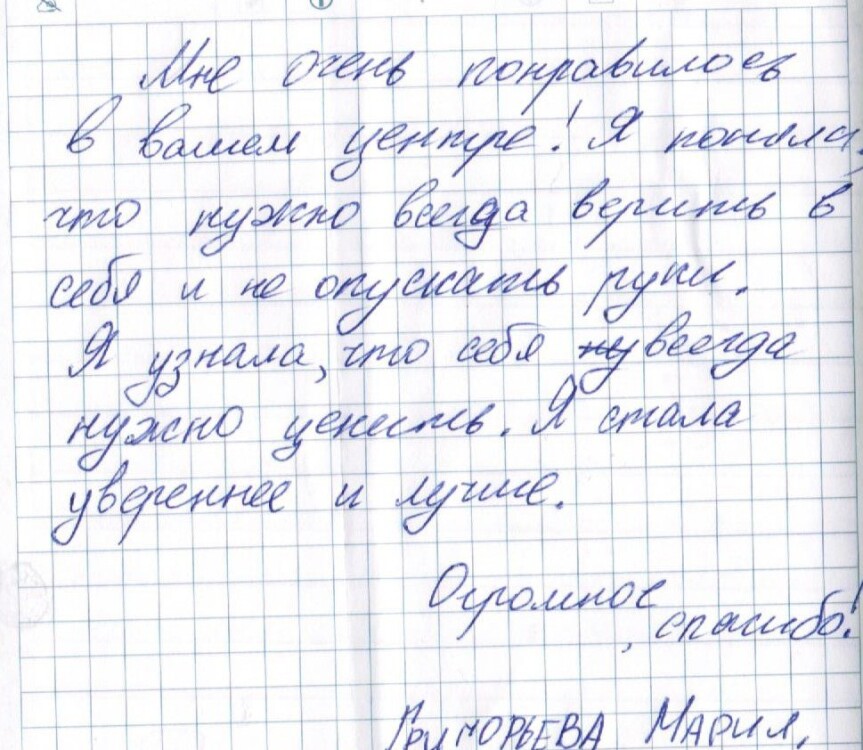 Мне очень понравилось
в вашем центре! Я поняла,
что нужно всегда верить в
себя и не опускать руки.
Я узнала, что себя ну всегда
нужно ценить. Я стала
увереннее и лучше.
Огромное
спасибо!
Григорьева Мария,